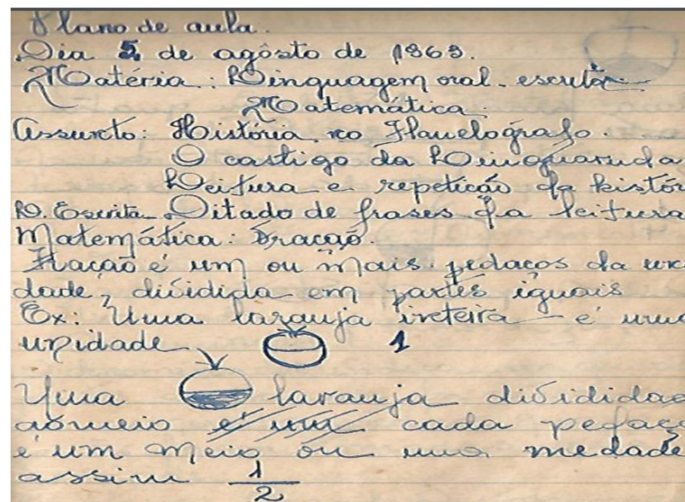 Plano de aula.
Dia 5 de agôsto de 1969.
Matéria: Linguagem oral. escrita
Matemática.
Assunto: História no Flanelógrafo.
O castigo da Linguaruda
Leitura e repetição da histór
L. Escrita Ditado de frases da leitura
Matemática: Fração.
Fração é um ou mais pedaços da un
dade, dividida em partes iguais
Ex: Uma laranja inteira é uma
unidade 1
Uma laranja divididao
ao meio é um cada pedaço
é um meio ou uma medade
assim 1/2